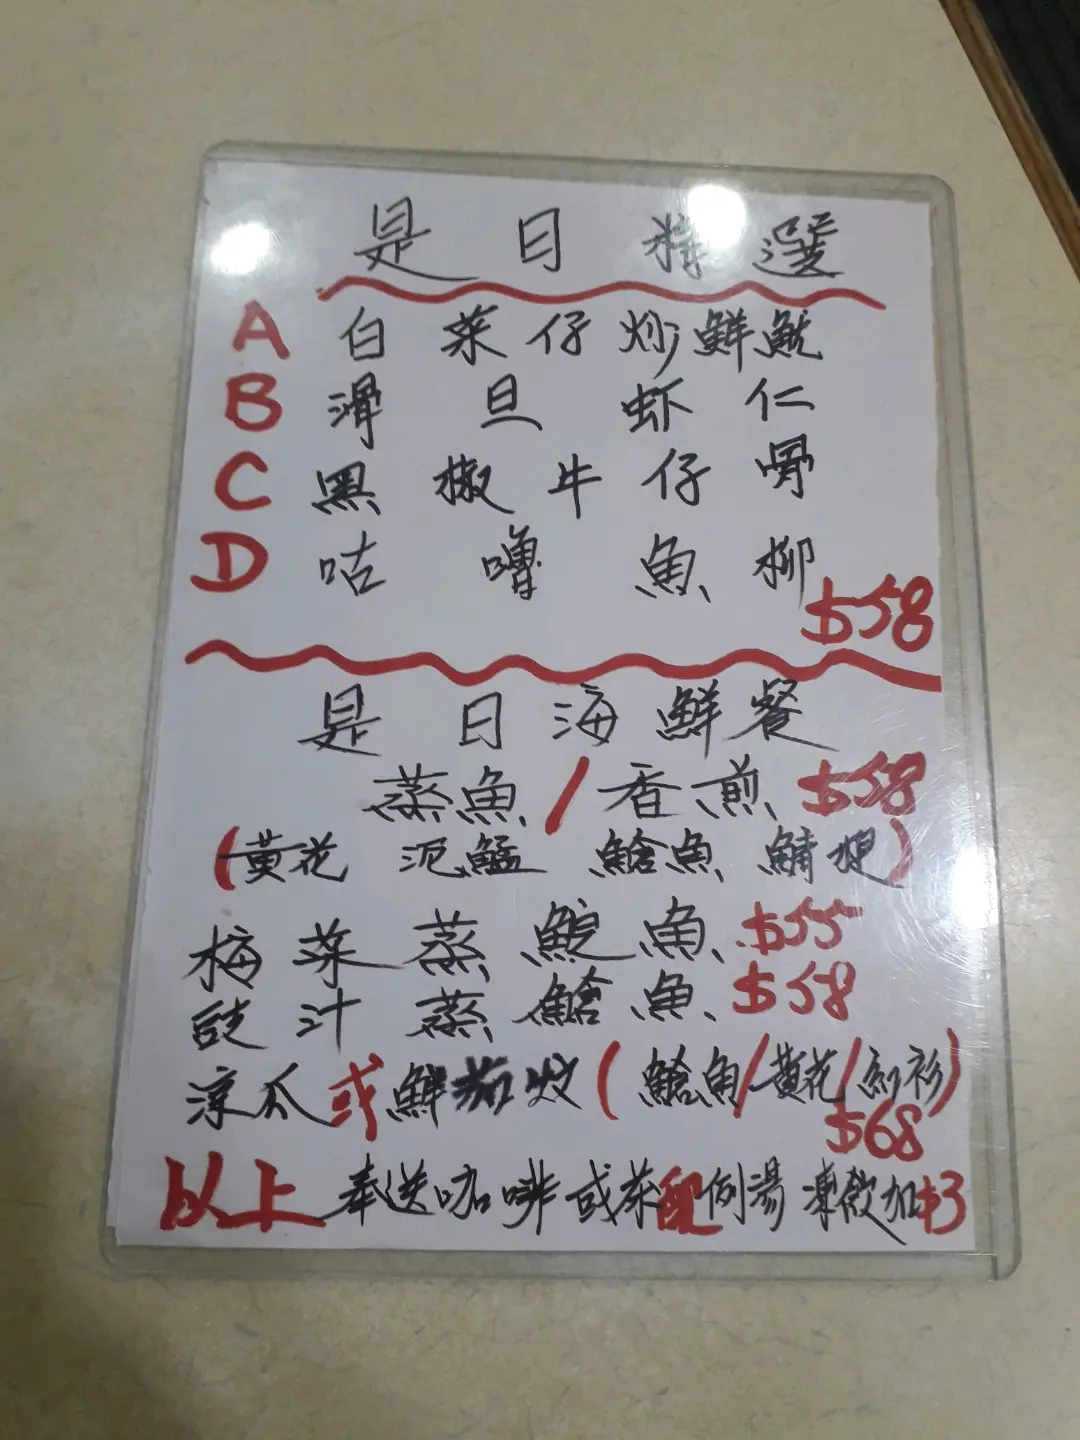 是日精選
A 白菜仔炒鮮魷
B 滑旦蝦仁
C 黑椒牛仔骨
D 咕嚕魚柳
$58
是日海鮮餐
蒸魚/香煎 $58
(黃花 泥鯭 鱠魚 鯖)
梅菜蒸鯇魚 $55
豉汁蒸鱠魚 $58
涼瓜或鮮茄炆(鱠魚/黃花/紅衫)
$68
以上奉送咖啡或茶跟例湯 凍飲加$3